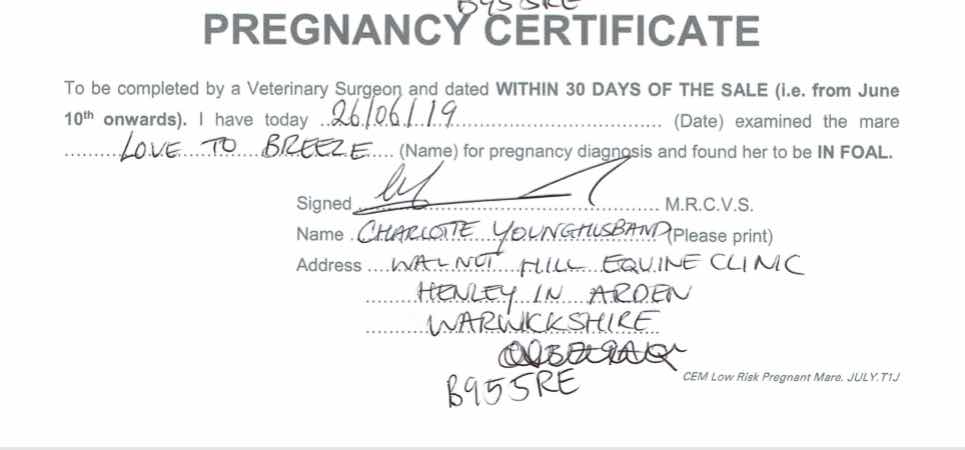 B95 5RE
PREGNANCY CERTIFICATE
To be completed by a Veterinary Surgeon and dated WITHIN 30 DAYS OF THE SALE (i.e. from June
10th onwards). I have today 26/06/19 (Date) examined the mare
LOVE TO BREEZE (Name) for pregnancy diagnosis and found her to be IN FOAL.
Signed M.R.C.V.S.
Name CHARLOTTE YOUNGHUSBAND (Please print)
Address WALNUT HILL EQUINE CLINIC
HENLEY IN ARDEN
WARWICKSHIRE
CEM Low Risk Pregnant Mare. JULY.T1J
B95 5RE